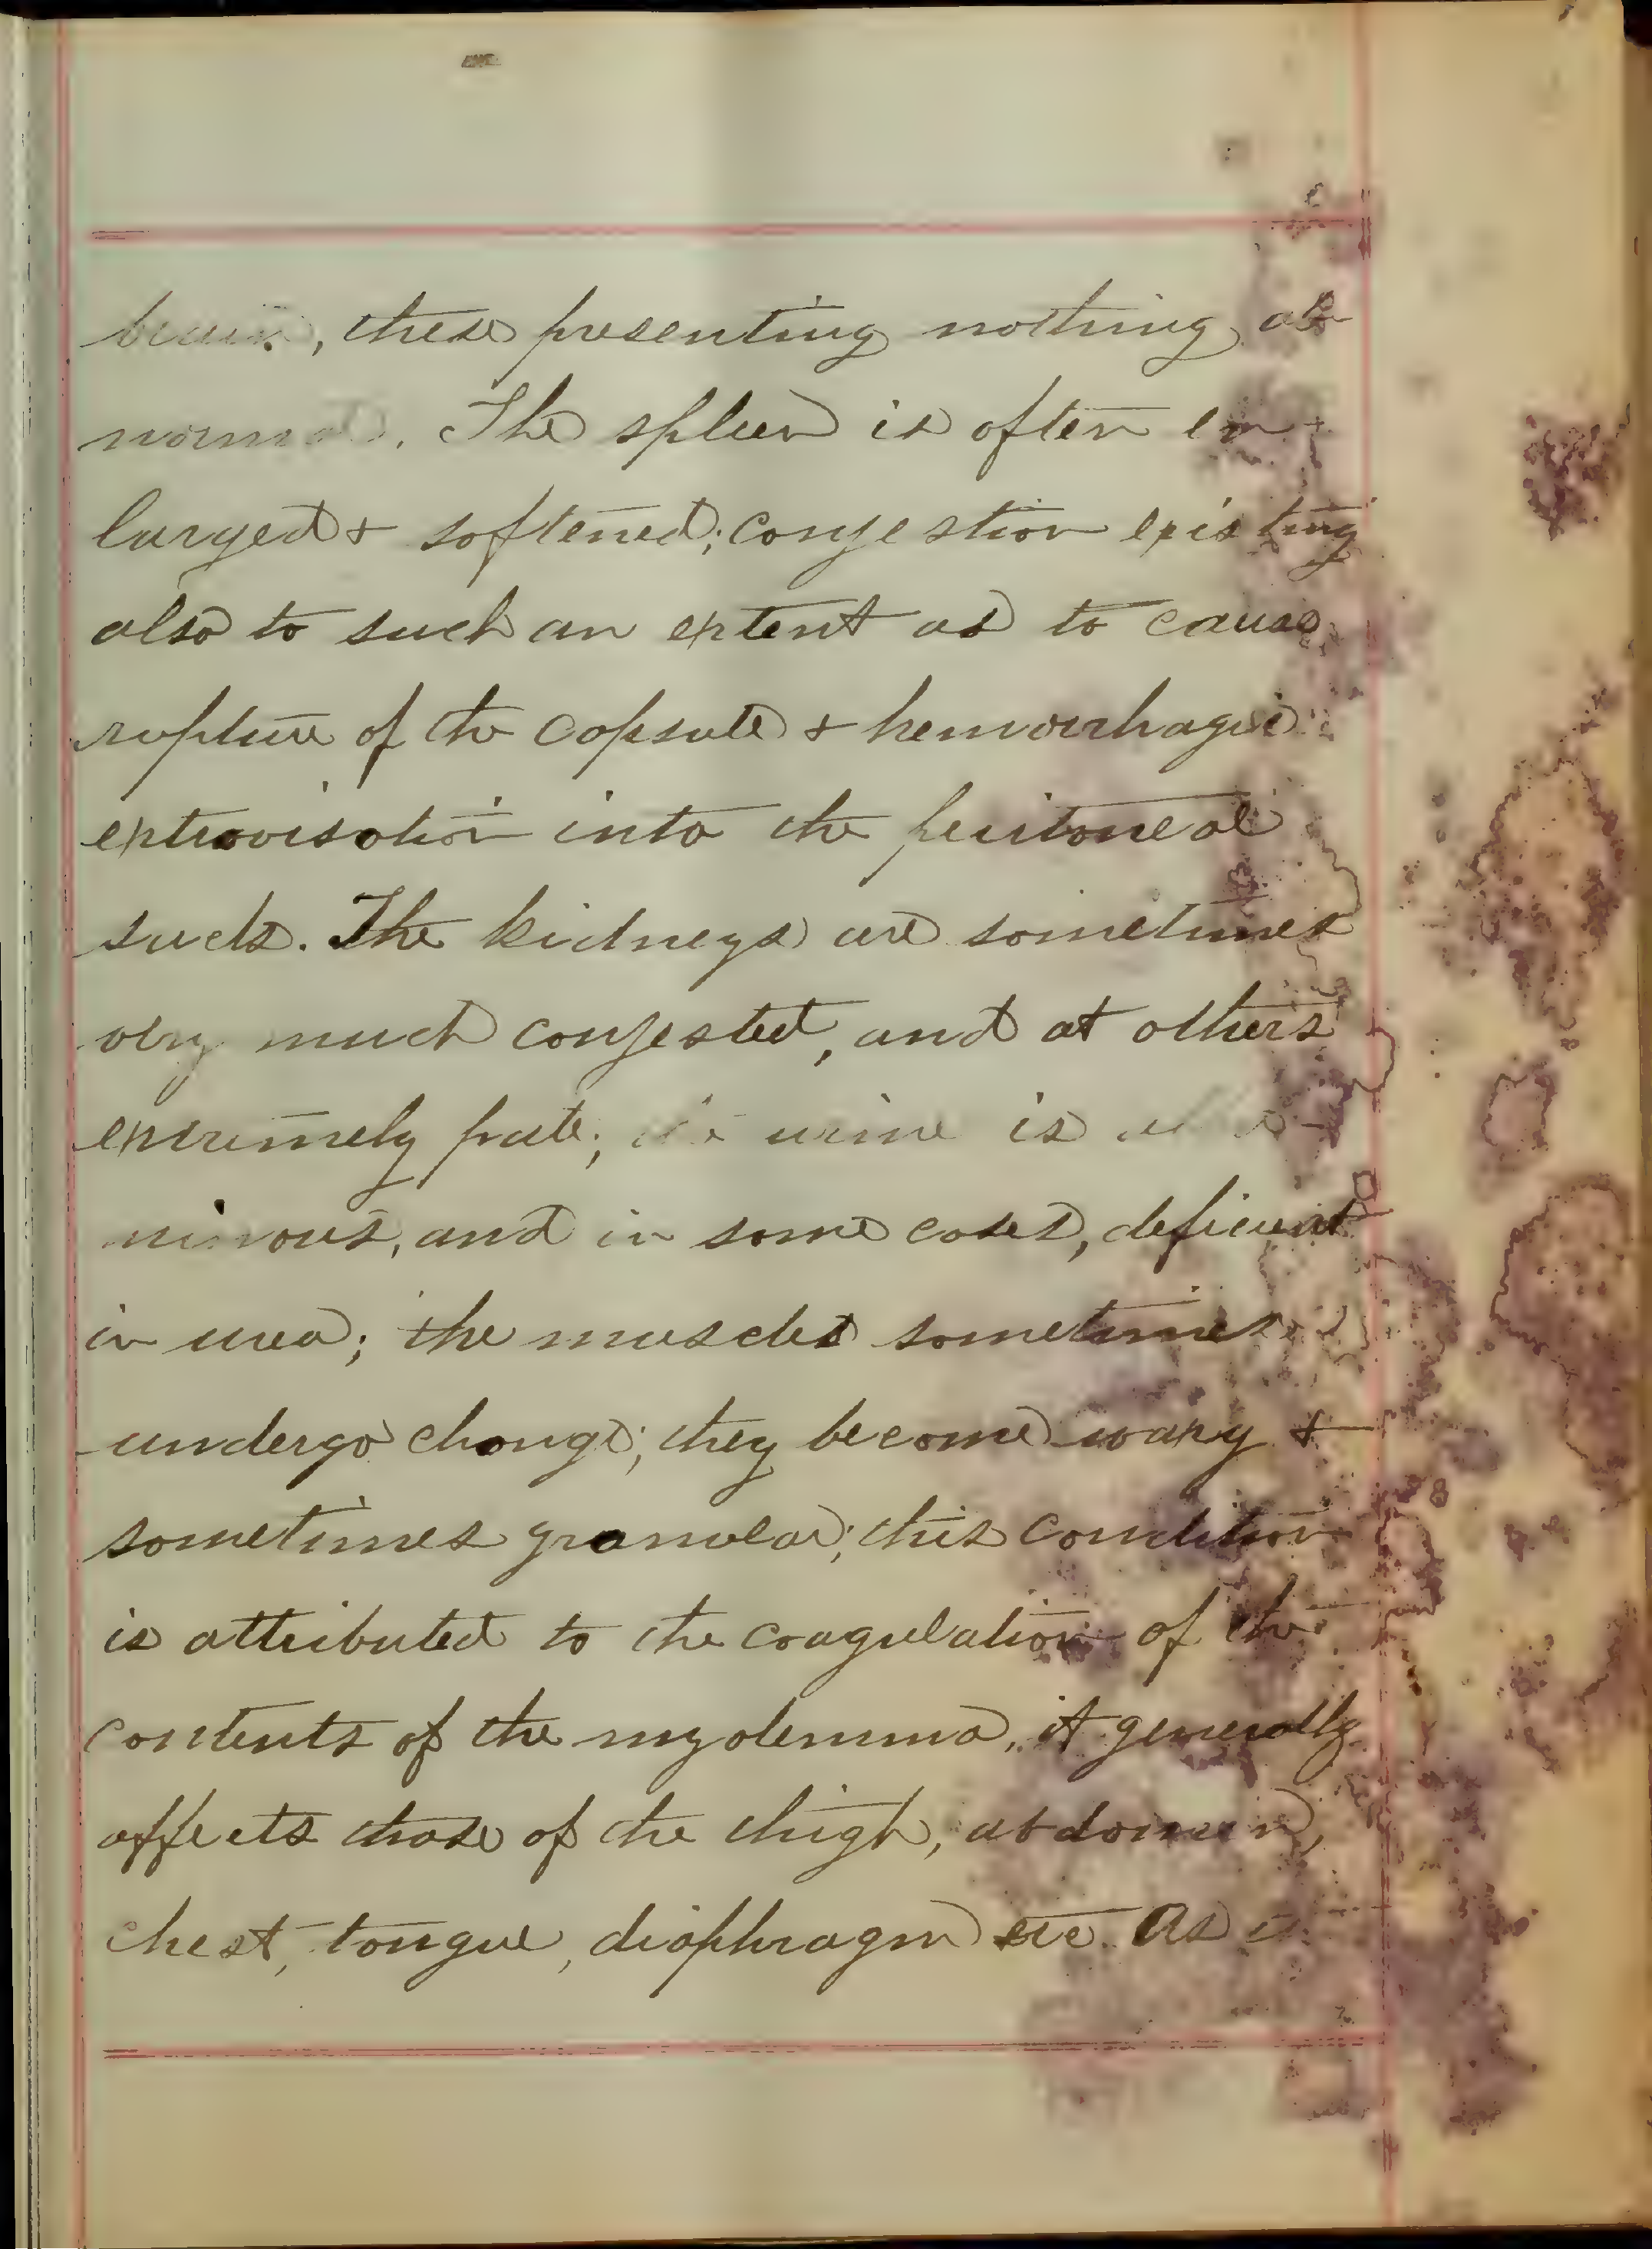 brain, these presenting nothing ab-
normal. The spleen is often en-
larged & softened; congestion existing
also to such an extent as to cause
rupture of the capsule & hemorrhagic
extravisation into the peritoneal
sack. The kidneys are sometimes
very much congested, and at others
extremely pale; the urine is albu-
minous, and in some cases, deficient
in urea; the muscles sometimes
undergo change; they become waxy &
sometimes granular; this condition
is attributed to the coagulation of the
contents of the myolemma, it generally
affects those of the thigh, abdomen,
chest, tongue, diaphragm etc. As